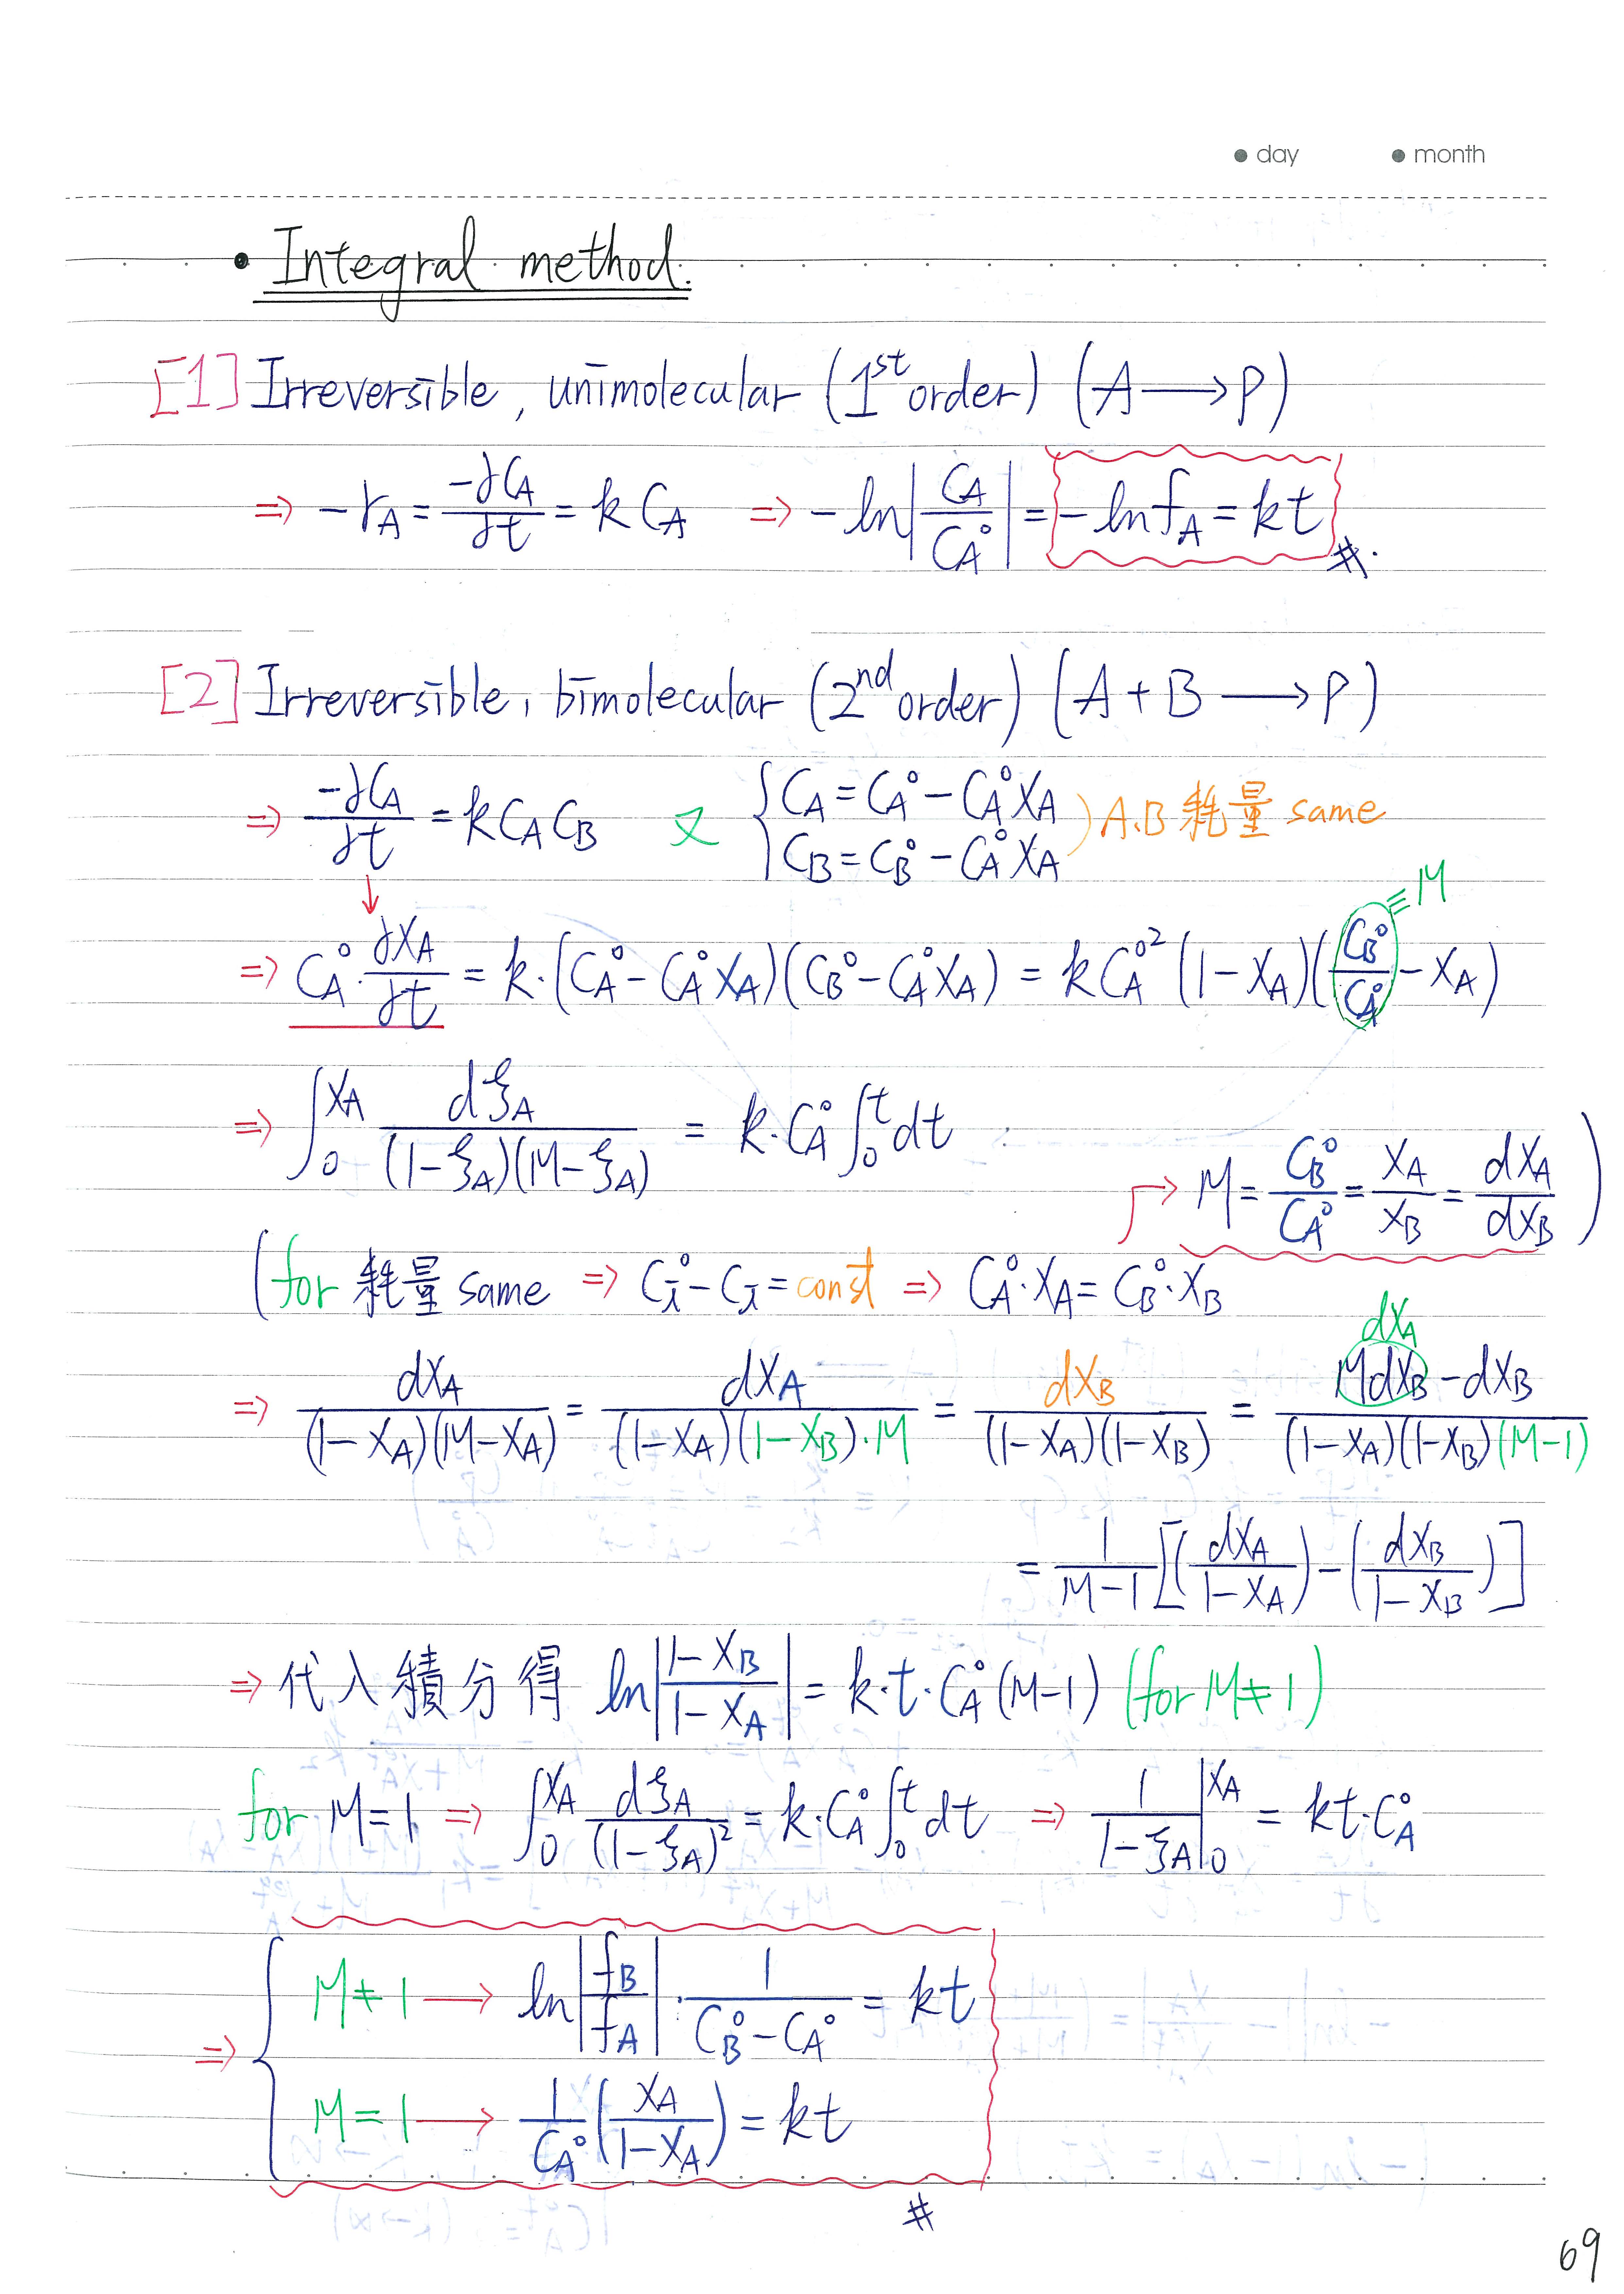 ● day ● month
• Integral method.
[1] Irreversible, unimolecular (1st order) (A ⟶ P)
⇒ -rA = -∂CA/∂t = k CA ⇒ -ln|CA/CA°| = -ln fA = kt #.
[2] Irreversible, bimolecular (2nd order) (A + B ⟶ P)
⇒ -∂CA/∂t = k CA CB 又 { CA = CA° - CA° XA
CB = CB° - CA° XA ) A.B 耗量 same
⇒ CA° · ∂XA/∂t = k·(CA° - CA° XA)(CB° - CA° XA) = k CA°² (1 - XA)(CB°/CA° - XA) ≡ M
⇒ ∫₀^XA dξA/((1-ξA)(M-ξA)) = k·CA° ∫₀^t dt
→ M = CB°/CA° = XA/XB = dXA/dXB )
(for 耗量 same ⇒ Ci° - Ci = const ⇒ CA°·XA = CB°·XB
dXA
⇒ dXA/((1-XA)(M-XA)) = dXA/((1-XA)(1-XB)·M) = dXB/((1-XA)(1-XB)) = (MdXB - dXB)/((1-XA)(1-XB)(M-1))
= 1/(M-1) [(dXA/(1-XA)) - (dXB/(1-XB))]
⇒ 代入積分得 ln|(1-XB)/(1-XA)| = k·t·CA°(M-1) (for M≠1)
for M=1 ⇒ ∫₀^XA dξA/(1-ξA)² = k·CA° ∫₀^t dt ⇒ 1/(1-ξA)|₀^XA = kt·CA°
⇒ { M≠1 ⟶ ln|fB/fA| · 1/(CB° - CA°) = kt
M=1 ⟶ 1/CA° (XA/(1-XA)) = kt
#
69